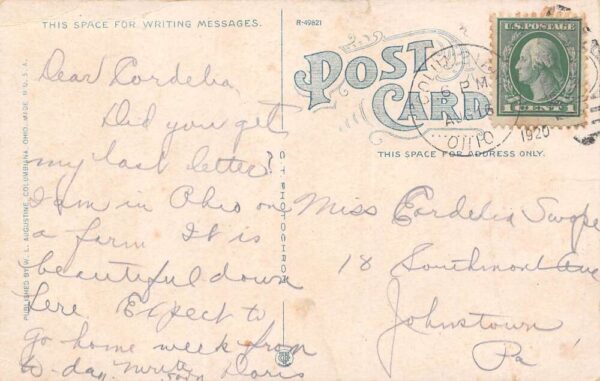 THIS SPACE FOR WRITING MESSAGES.
Dear Cordelia,
Did you get
my last letter?
I am in Ohio on
a farm It is
beautiful down
here. Expect to
go home week from
to-day. Write
soon Doris
PUBLISHED BY W. L. AUGUSTINE, COLUMBIANA, OHIO. MADE U.S.A.
R-49821
C.T. PHOTOCHROM
POST CARD
THIS SPACE FOR ADDRESS ONLY.
6 P.M.
OHIO
1920
U.S. POSTAGE
1 CENT 1
Miss Cordelia Swope
18 Southmont Ave
Johnstown,
Pa